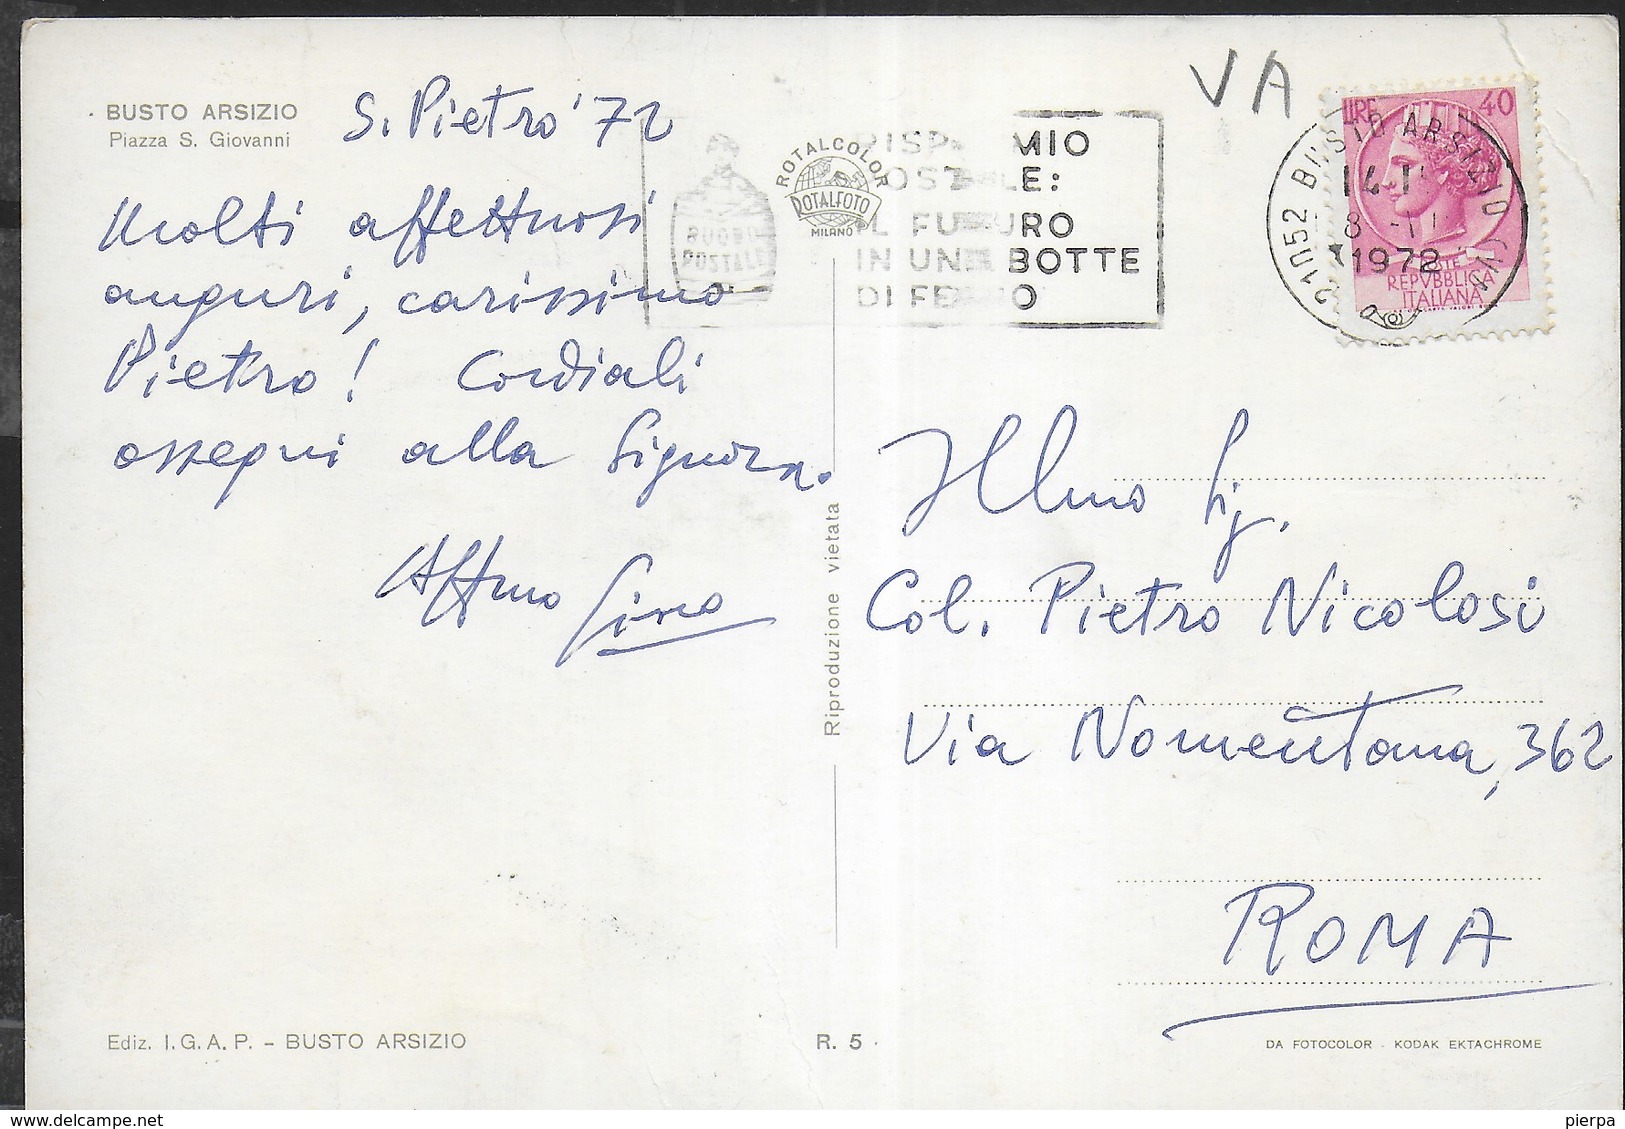 BUSTO ARSIZIO
Piazza S. Giovanni
S. Pietro '72
Molti affettuosi
auguri, carissimo
Pietro! Cordiali
ossequi alla Signora.
Affmo Gino
ROTALCOLOR
ROTALFOTO
MILANO
BUONO
POSTALE
RISPARMIO
POSTALE:
IL FUTURO
IN UNA BOTTE
DI FERRO
VA
LIRE 40
POSTE
REPVBBLICA
ITALIANA
21052 BUSTO ARSIZIO
1972
Riproduzione vietata
Illmo Sig.
Col. Pietro Nicolosi
Via Nomentana, 362
ROMA
Ediz. I.G.A.P. - BUSTO ARSIZIO
R. 5
DA FOTOCOLOR - KODAK EKTACHROME
delcampe.net
pierpa